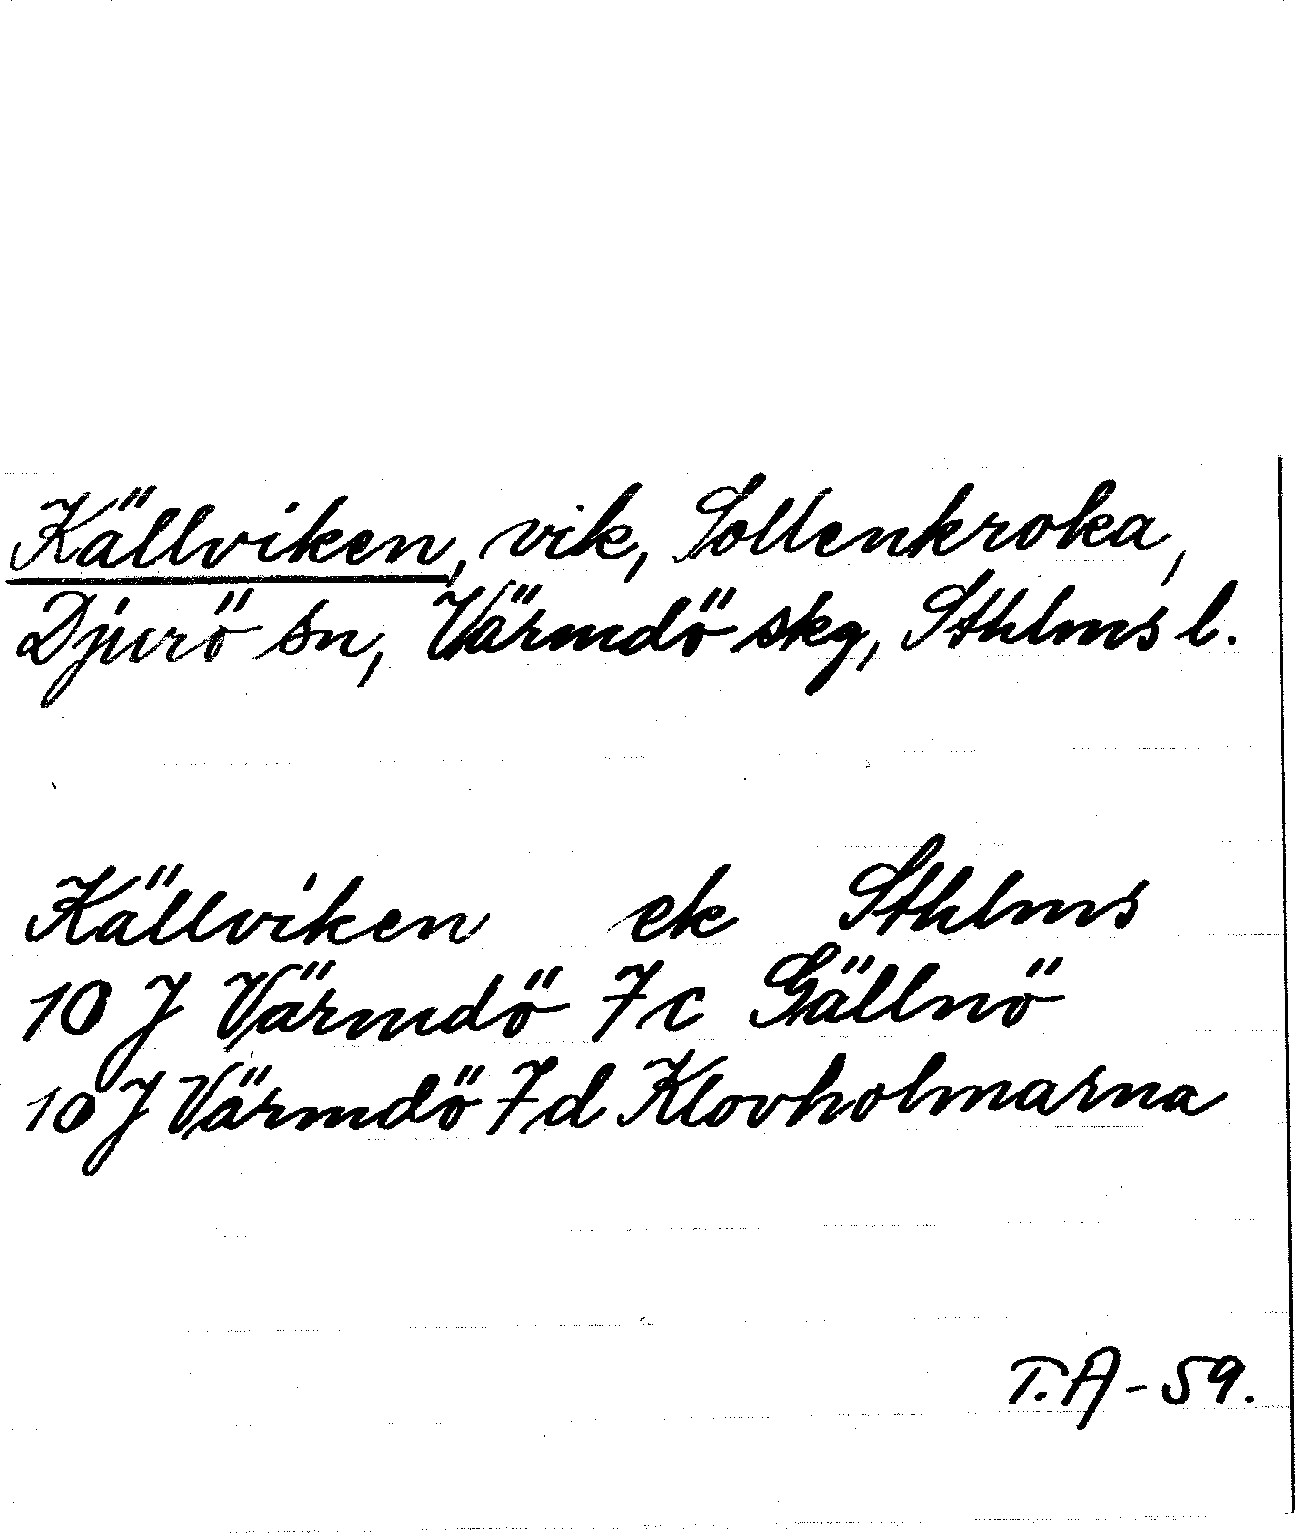 Källviken, vik, Sollenkroka,
Djurö sn, Värmdö skg, Sthlms l.
Källviken ek Sthlms
10 J Värmdö 7c Gällnö
10 J Värmdö 7d Klovholmarna
T.A-59.